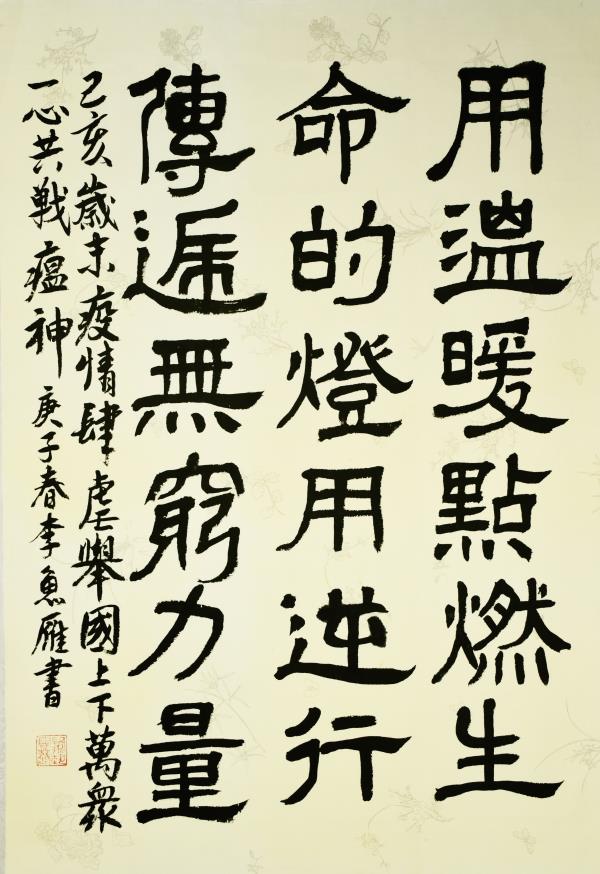 用溫暖點燃生
命的燈用逆行
傳遞無窮力量
己亥歲末疫情肆虐舉國上下萬眾
一心共戰瘟神 庚子春李魚雁書